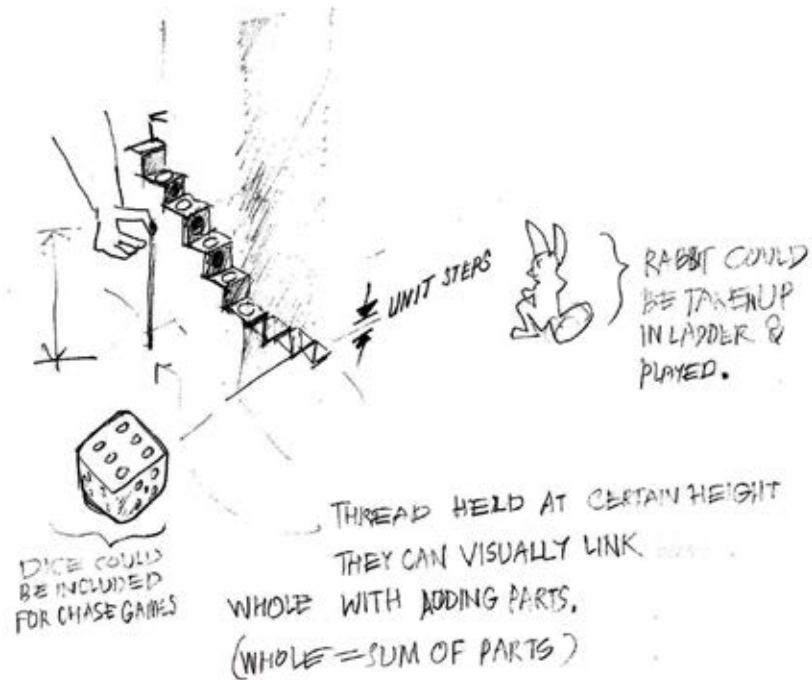 UNIT STEPS
RABBIT COULD
BE TAKEN UP
IN LADDER &
PLAYED.
DICE COULD
BE INCLUDED
FOR CHASE GAMES
THREAD HELD AT CERTAIN HEIGHT
THEY CAN VISUALLY LINK
WHOLE WITH ADDING PARTS.
(WHOLE = SUM OF PARTS)